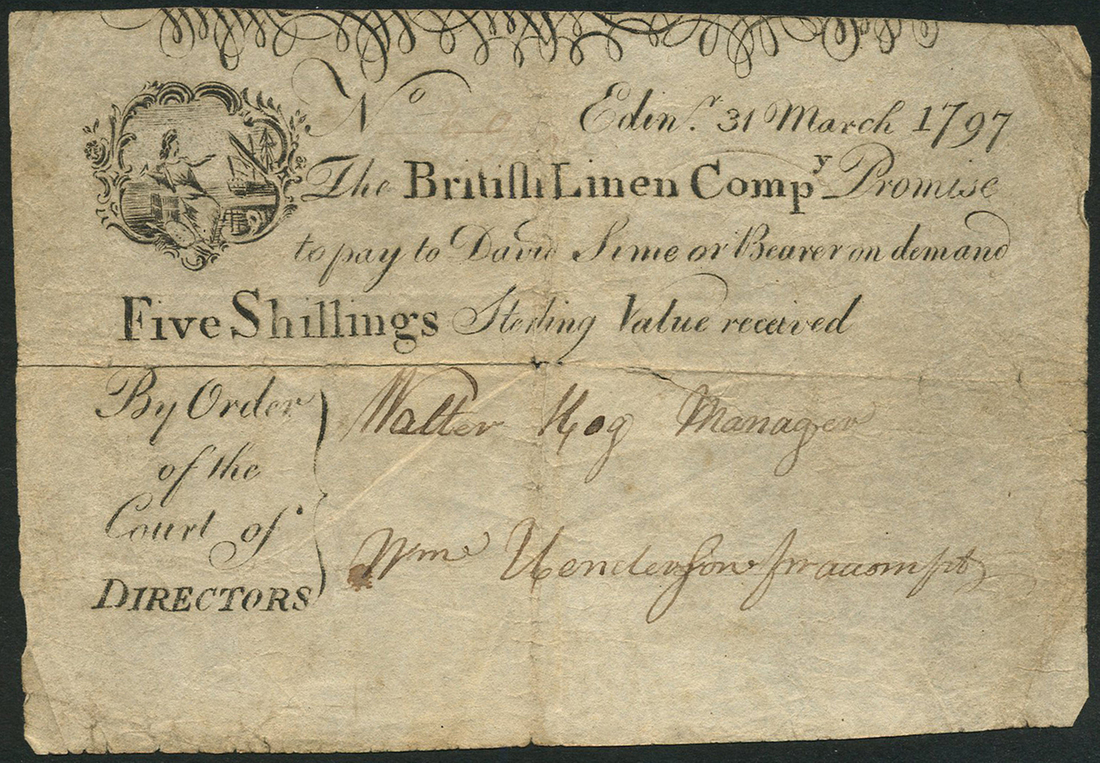 No
Edinr. 31 March 1797
The British Linen Compy Promise
to pay to David Sime or Bearer on demand
Five Shillings Sterling Value received
By Order
of the
Court of
DIRECTORS
Walter Hog Manager
Wm Henderson pr accompt